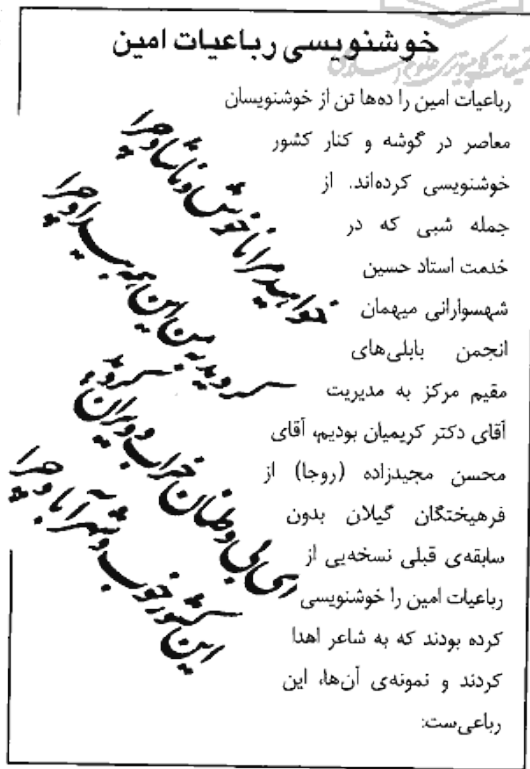 خوشنویسی رباعیات امین
رباعیات امین را ده‌ها تن از خوشنویسان
معاصر در گوشه و کنار کشور
خوشنویسی کرده‌اند. از
جمله شبی که در
خدمت استاد حسین
شهسوارانی میهمان
انجمن بابلی‌های
مقیم مرکز به مدیریت
آقای دکتر کریمیان بودیم، آقای
محسن مجیدزاده (روجا) از
فرهیختگان گیلان بدون
سابقه‌ی قبلی نسخه‌یی از
رباعیات امین را خوشنویسی
کرده بودند که به شاعر اهدا
کردند و نمونه‌ی آن‌ها، این
رباعی‌ست:
خواهید مرا ناخوش و ناشاد چرا
کردید به من این همه بیداد چرا
ای بی وطنان خراب و ویران کردید
این کشور خوب و شهر آباد چرا